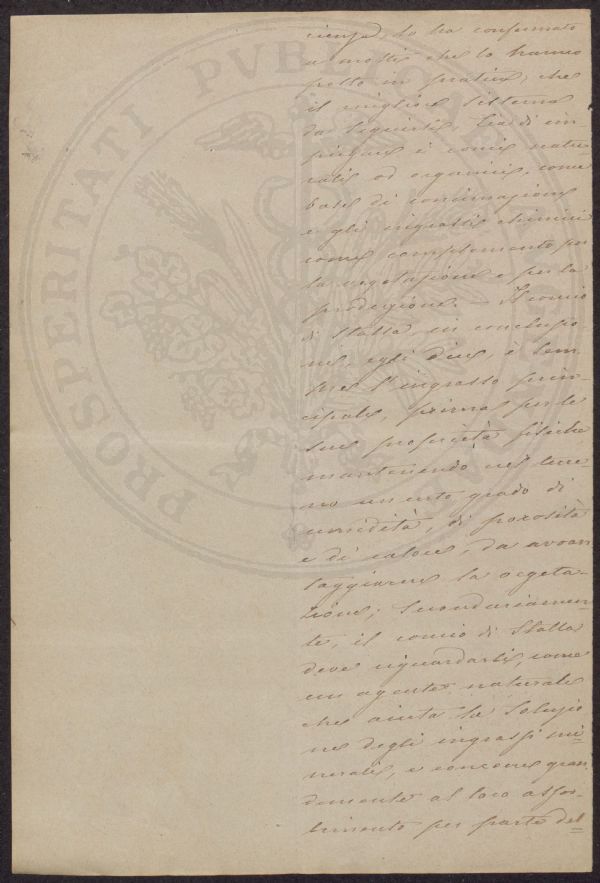 PROSPERITATI PVBL
rienza, lo ha confermato
a molti che lo hanno
posto in pratica, che
il migliore sistema
da seguirsi, sia di im
piegare i concii natu
rali od organici, come
base di concimazione
e gli ingrassi chimici
come complemento per
la vegetazione e per la
produzione. — Il concio
di stalla in conclusio
ne, egli dice, è sem
pre l'ingrasso prin-
cipale, prima per le
sue proprietà fisiche
mantenendo nel terre-
no un certo grado di
umidità, di porosità
e di calore, da avvan
taggiarne la vegeta-
zione; secondariamen-
te, il concio di stalla
deve riguardarsi, come
un agente naturale
che aiuta la soluzio
ne degli ingrassi mi
nerali, e concorre gran
demente al loro assor-
bimento per parte del